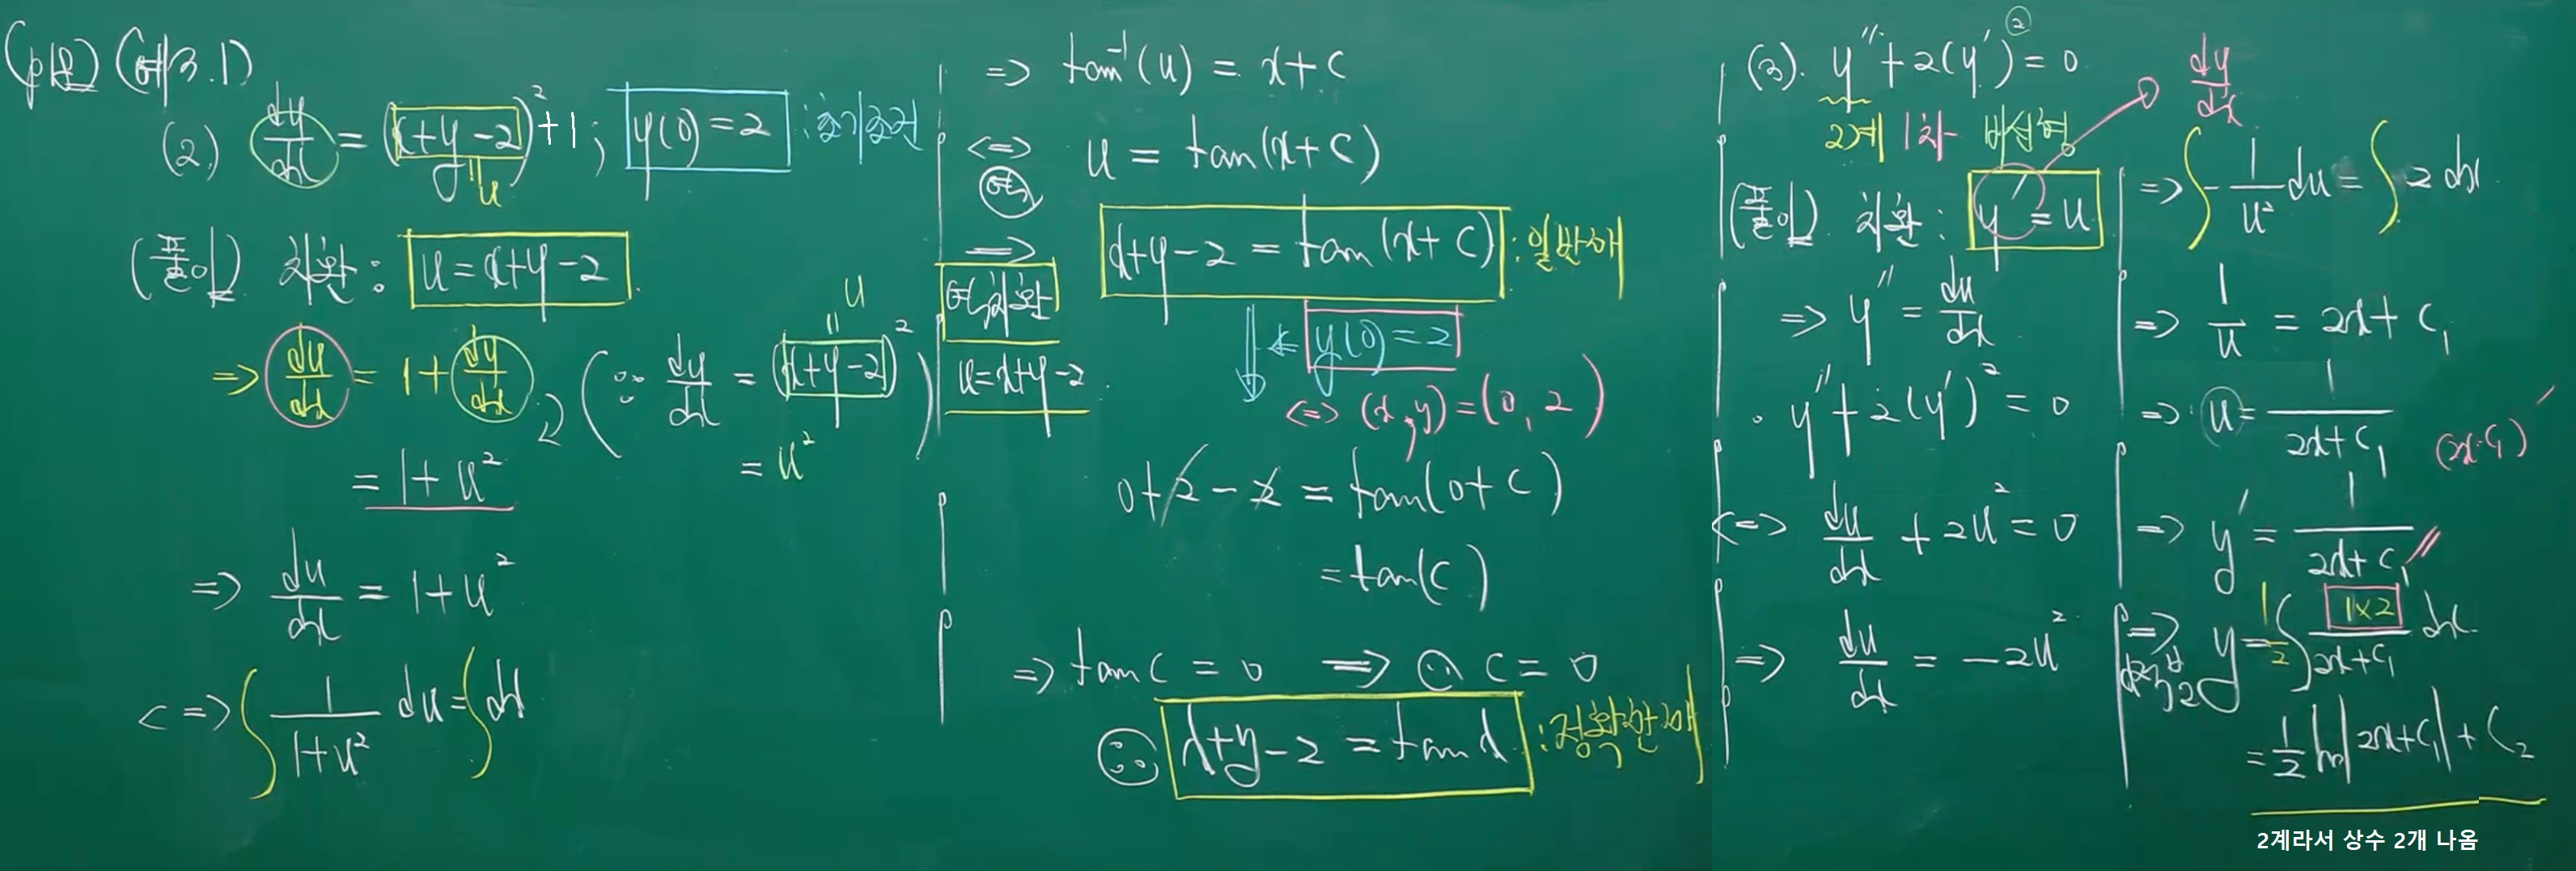 (예 3.1)
(2) dy/dx = (x+y-2)² + 1 ; y(0)=2 : 초기조건
u
(풀이) 치환 : u = x+y-2
⇒ du/dx = 1 + dy/dx (∵ dy/dx = (x+y-2)²
u
= 1+u²
= u²)
⇒ du/dx = 1+u²
<=> ∫ 1/(1+u²) du = ∫ dx
⇒ tan⁻¹(u) = x+C
<=> u = tan(x+C)
⇒ x+y-2 = tan(x+C) : 일반해
역치환
u=x+y-2
← y(0)=2
<=> (x,y)=(0,2)
0+2-2 = tan(0+C)
= tan(C)
⇒ tan C = 0 ⇒ ∴ C = 0
∴ x+y-2 = tan x : 정확한해
(3). y″+2(y′)² = 0
②
dy/dx
2계 1차 비선형
(풀이) 치환 : y′ = u
⇒ y″ = du/dx
· y″+2(y′)² = 0
<=> du/dx + 2u² = 0
⇒ du/dx = -2u²
⇒ ∫ - 1/u² du = ∫ 2 dx
⇒ 1/u = 2x+C₁
⇒ u = 1/(2x+C₁)
⇒ y′ = 1/(2x+C₁)
⇒ y = 1/2 ∫ 1×2/(2x+C₁) dx
= 1/2 ln|2x+C₁| + C₂
2계라서 상수 2개 나옴